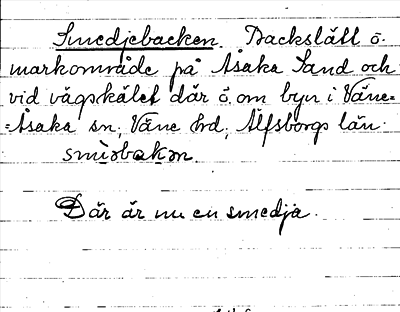 Smedjebacken. Backslätt o.
markområde på Åsaka Sand och
vid vägskälet där ö. om byn i Väne=
=Åsaka sn, Väne hrd, Älfsborgs län.
smìəbakən.
Där är nu en smedja.